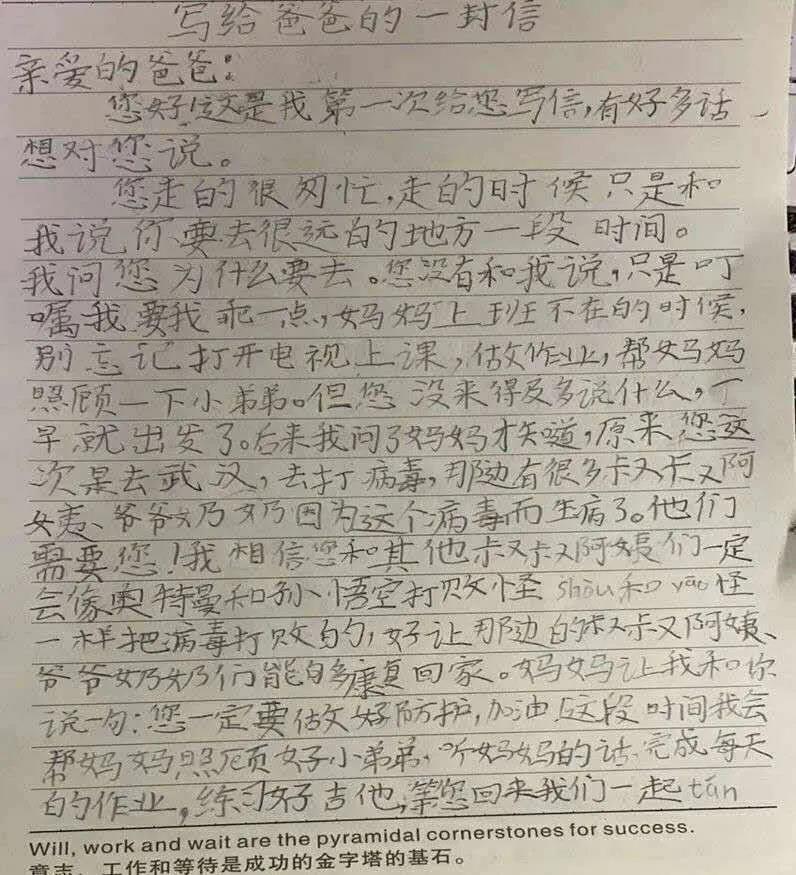 写给爸爸的一封信
亲爱的爸爸：
您好！这是我第一次给您写信，有好多话
想对您说。
您走的很匆忙，走的时候只是和
我说你要去很远的地方一段时间。
我问您为什么要去。您没有和我说，只是叮
嘱我要我乖一点，妈妈上班不在的时候，
别忘记打开电视上课，做作业，帮妈妈
照顾一下小弟弟。但您没来得及多说什么，一
早就出发了。后来我问了妈妈才知道，原来您这
次是去武汉，去打病毒，那边有很多叔叔阿
姨、爷爷奶奶因为这个病毒而生病了。他们
需要您！我相信您和其他叔叔阿姨们一定
会像奥特曼和孙悟空打败怪shòu和yāo怪
一样把病毒打败的，好让那边的叔叔阿姨、
爷爷奶奶们能够康复回家。妈妈让我和你
说一句：您一定要做好防护，加油！这段时间我会
帮妈妈照顾好小弟弟，听妈妈的话、完成每天
的作业，练习好吉他，等您回来我们一起tán
Will, work and wait are the pyramidal cornerstones for success.
意志、工作和等待是成功的金字塔的基石。